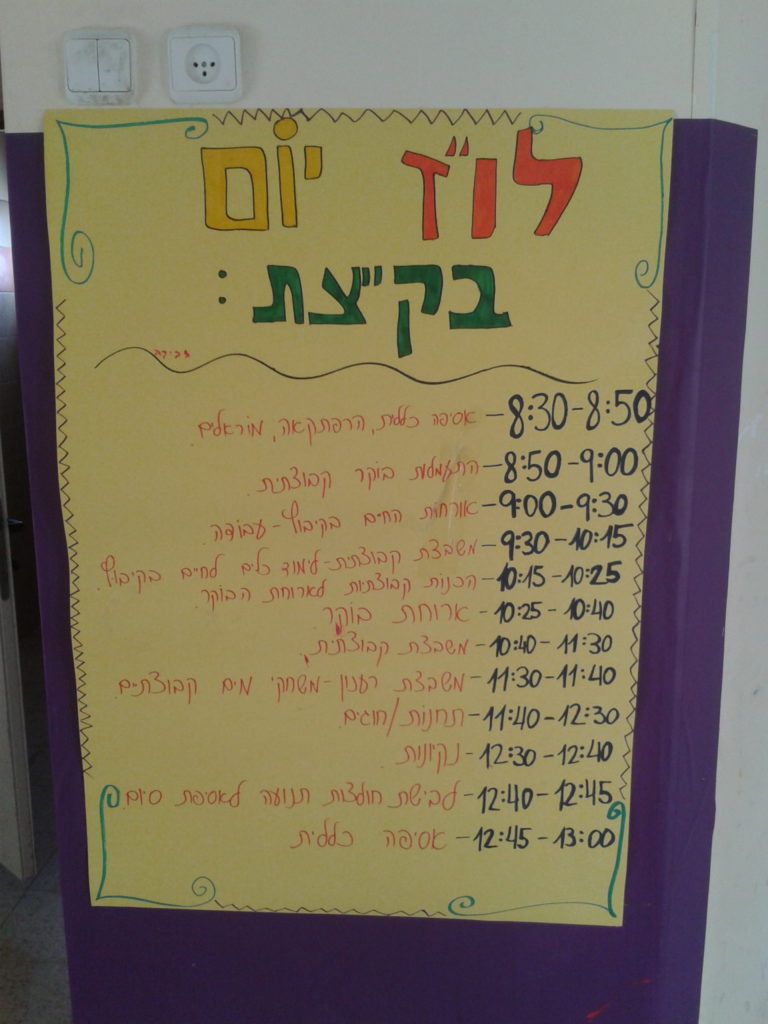 לו"ז יום
בק"צת:
8:30-8:50 - אסיפה כללית, הרפתקאה, מוראלים.
8:50-9:00 - התעמלות בוקר קבוצתית.
9:00-9:30 - אורחות החיים בקיבוץ - עבודה.
9:30-10:15 - משבצת קבוצתית - לימוד כלים לחיים בקיבוץ.
10:15-10:25 - הכנות קבוצתיות לארוחת הבוקר.
10:25-10:40 - ארוחת בוקר
10:40-11:30 - משבצת קבוצתית.
11:30-11:40 - משבצת רענון - משחקי מים קבוצתים.
11:40-12:30 - תחנות/חוגים.
12:30-12:40 - נקיונות
12:40-12:45 - לבישת חולצות תנועה לאסיפת סיום.
12:45-13:00 - אסיפה כללית